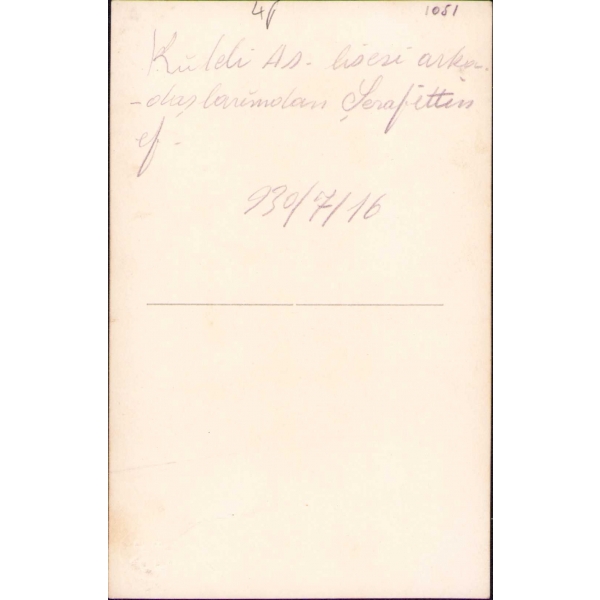 1051
Küleli As. lisesi arka-
-daşlarımdan Şerafettin
ef.
930/7/16